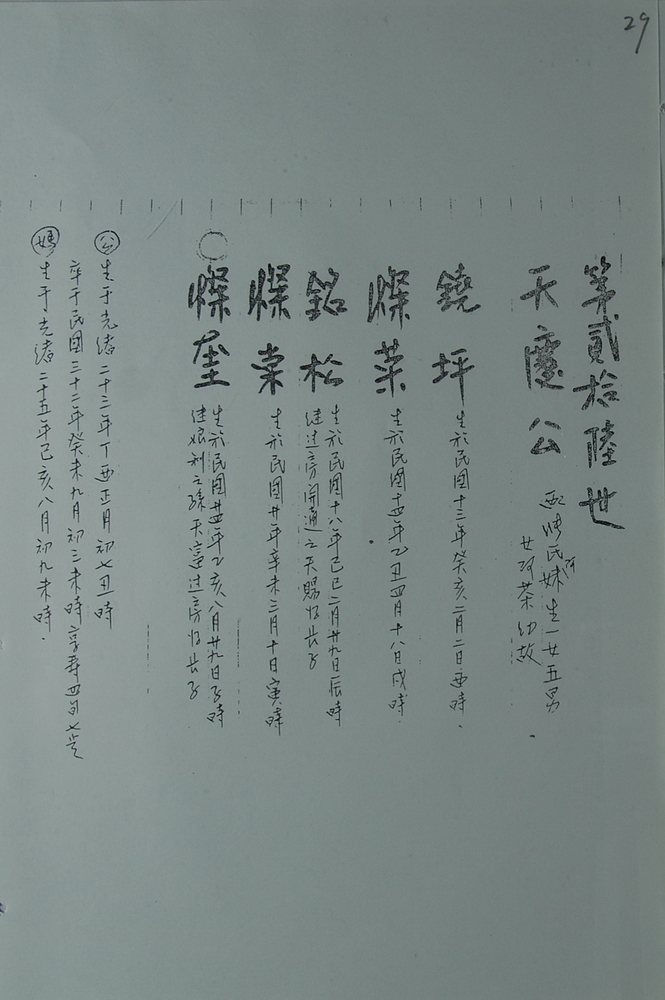 29
第貳拾陸世
天慶公
配 氏阿妹生一女五男
女阿茶幼故
鐃坪
生於民國十三年癸亥二月二日酉時
燦葉
生於民國十四年乙丑四月十八日戌時
銘松
生於民國十八年己巳二月廿九日辰時
繼過房開通之天賜為長子
燦棠
生於民國廿年辛未三月十日寅時
燦
生於民國廿四年乙亥八月廿九日子時
之孫天 過房為長子
公 生于光緒二十三年丁酉正月初七丑時
卒于民國三十二年癸未九月初三未時享壽四旬七
媽 生于光緒二十五年己亥八月初九未時